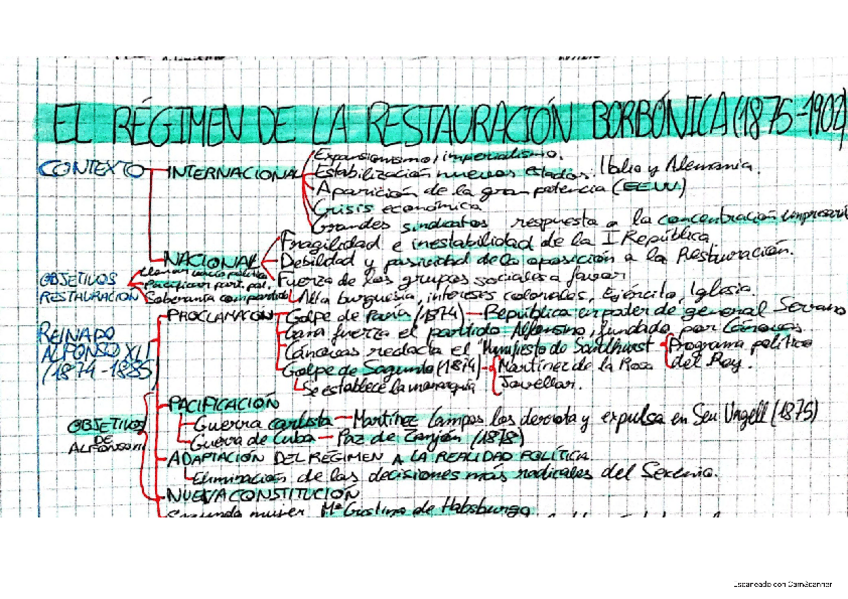 EL RÉGIMEN DE LA RESTAURACIÓN BORBÓNICA (1875-1902)
CONTEXTO
INTERNACIONAL
Expansionismo, imperialismo.
Estabilización nuevos estados. Italia y Alemania.
Aparición de la gran potencia (EEUU)
Crisis económica
Grandes sindicatos respuesta a la concentración empresari
NACIONAL
Fragilidad e inestabilidad de la I República.
Debilidad y pasividad de la oposición a la Restauración.
Fuerza de los grupos sociales a favor
Alta burguesía, intereses coloniales, Ejército, Iglesia.
OBJETIVOS RESTAURACIÓN
Llenar vacío político
Pacificar part. pol.
Soberanía compartida
REINADO
ALFONSO XII
(1874-1885)
PROCLAMACIÓN
Golpe de Pavía (1874) - República en poder de general Serrano
Gana fuerza el partido Alfonsino, fundado por Cánovas
Cánovas redacta el "Manifiesto de Sandhurst - Programa político
del Rey.
Golpe de Sagunto (1874) - Martínez de la Rosa
Jovellar.
Se establece la monarquía
OBJETIVOS
DE
ALFONSO XII
PACIFICACIÓN
Guerra carlista - Martínez Campos los derrota y expulsa en Seu Urgell (1875)
Guerra de Cuba - Paz de Zanjón (1878)
ADAPTACIÓN DEL RÉGIMEN A LA REALIDAD POLÍTICA.
Eliminación de las decisiones más radicales del Sexenio.
NUEVA CONSTITUCIÓN
Segunda mujer Mª Cristina de Habsburgo.
Escaneado con CamScanner